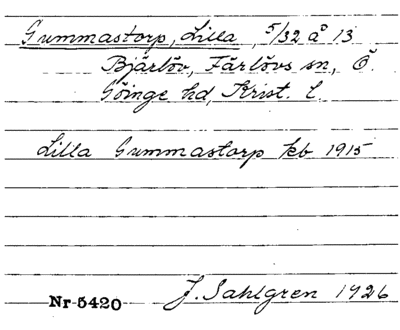 Gummastorp, Lilla, 5/32 å 13
Bjärlöv, Färlövs sn, Ö.
Göinge hd, Krist. l.
Lilla Gummastorp kb 1915
Nr 5420 J. Sahlgren 1926